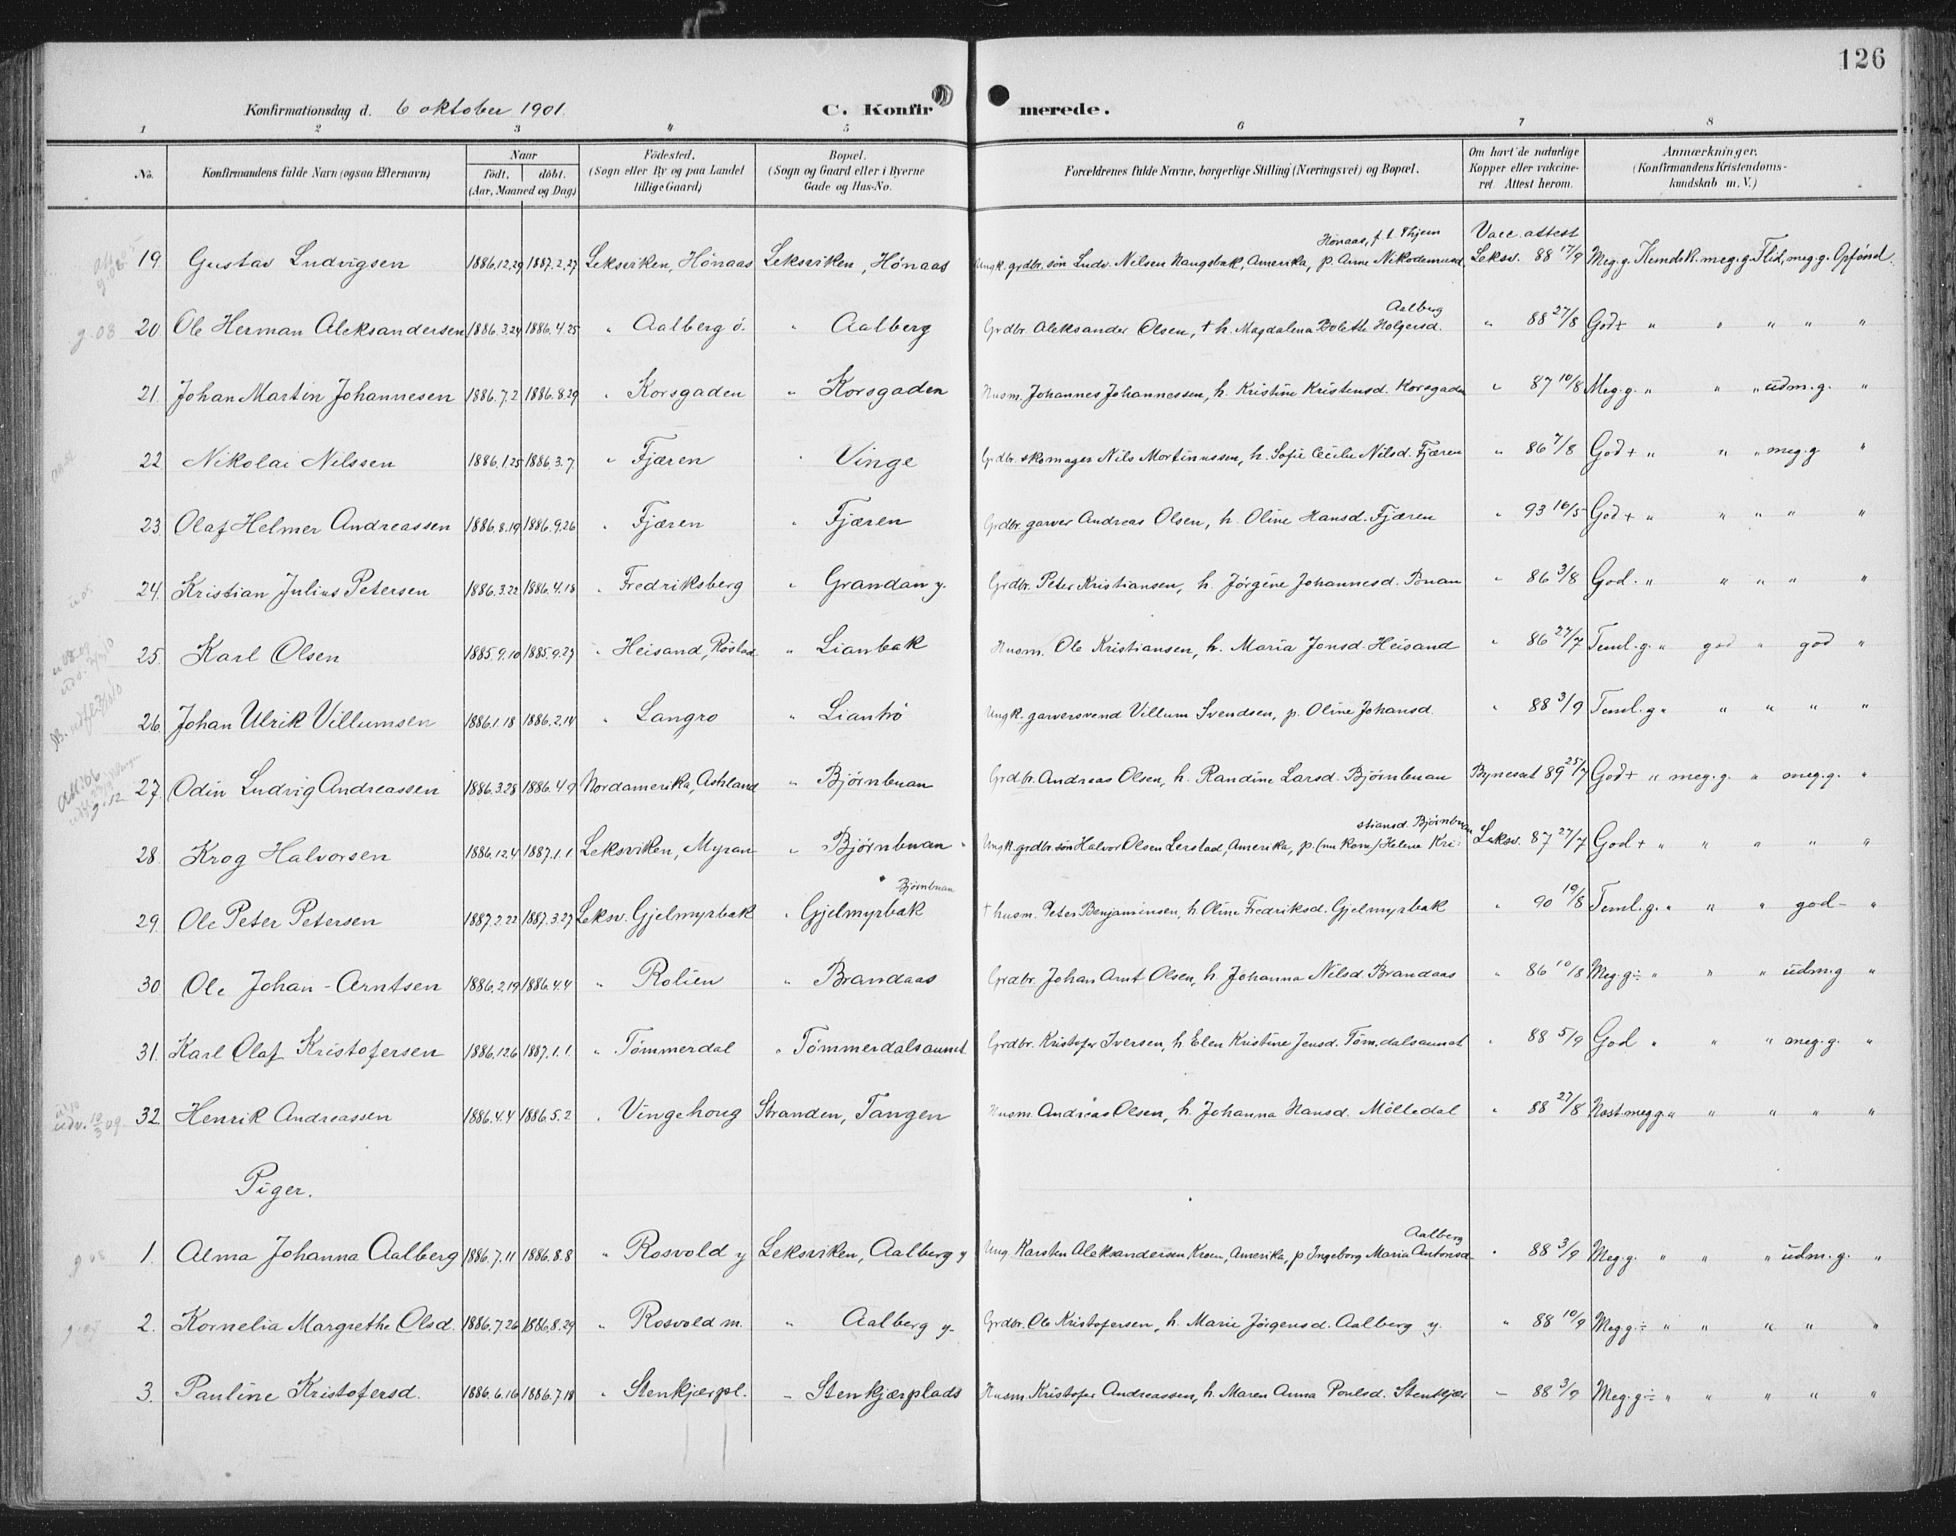 126
Konfirmationsdag d. 6 oktober 1901. C. Konfirmerede.
1 2 3 4 5 6 7 8
No. Konfirmandens fulde Navn (ogsaa Efternavn) Naar født. døbt. (Aar, Maaned og Dag) Fødested. (Sogn eller By og paa Landet tillige Gaard) Bopæl. (Sogn og Gaard eller i Byerne Gade og Hus-No. Forældrenes fulde Navne, borgerlige Stilling (Næringsvei) og Bopæl. Om havt de naturlige Kopper eller vakcineret. Attest herom. Anmærkninger. (Konfirmandens Kristendomskundskab m. V.)
Hønaas, f. t. Vacc. attest
19. Gustav Ludvigsen 1886.12.29 1887.2.27 Leksviken, Hønaas Leksviken, Hønaas Ungk. grdbr. søn Ludv. Nilsen Amerika, p. Anne Nikodemusd. Leksv. 88 17/9 Meg. g. Kundsk. meg. g. Flid, meg. g. Opførsel.
Aalberg
g. 08 20. Ole Herman Aleksandersen 1886.3.24 1886.4.25 " Aalberg ö. " Aalberg Grdbr. Aleksander Olsen, † h. Magdalena Bolette Holgersd. " 88 27/8 God+ " " " " "
21. Johan Martin Johannesen 1886.7.2 1886.8.29 " Korsgaden " Korsgaden Husm. Johannes Johannessen, h. Kristine Kristensd. Korsgaden " 87 10/8 Meg. g. " " " udm. g. "
22 Nikolai Nilssen 1886.1.25 1886.3.7 " Fjæren " Vinge Grdbr. skomager Nils Mortinussen, h. Sofie Cecilie Nilsd. Fjæren " 86 7/8 God+ " " " meg. g "
23 Olaf Helmer Andreassen 1886.8.19 1886.9.26 " Fjæren " Fjæren Grdbr. garver Andreas Olsen, h. Oline Hansd. Fjæren " 93 10/5 God+ " " " " "
24. Kristian Julius Petersen 1886.3.22 1886.4.18 " Fredriksberg " Grandan y. Grdbr. Peter Kristiansen, h. Jørgine Johannesd. " 86 3/8 God. " " " " "
25. Karl Olsen 1885.9.10 1885.9.27 " Heisand, Røstad. " Lianbak Husm. Ole Kristiansen, h. Maria Jonsd. Heisand " 86 27/7 Teml. g. " god " god "
26. Johan Ulrik Villumsen 1886.1.18 1886.2.14 " Langro " Liantrø Ungk. garversvend Villum Svendsen, p. Oline Johansd. " 88 3/9 Teml. g " " " " "
27. Odin Ludvig Andreassen 1886.3.28 1886.4.9 Nordamerika, Ashland " Bjørnbuan Grdbr. Andreas Olsen, h. Randine Larsd. Bjørnbuan Bynesset 89 25/7 God+ " meg. g. " meg. g. "
stiansd. Bjørnbuan
28. Krog Halvorsen 1886.12.4 1887.1.1 Leksviken, Myran " Bjørnbuan Ungk. grdbr. søn Halvor Olsen Lerstad, Amerika, p. (nu kone) Helene Kri- Leksv. 87 27/7 God+ " " " " "
Bjørnbuan
29. Ole Peter Petersen 1887.2.22 1887.3.27 Leksv. Gjelmyrbak " Gjelmyrbak † husm. Peter Benjaminsen, h. Oline Fredriksd. Gjelmyrbak " 90 19/8 Teml. g. " " " god- "
30 Ole Johan Arntsen 1886.2.19 1886.4.4 " Rolien " Brandaas Grdbr. Johan Arnt Olsen, h. Johanna Nilsd. Brandaas " 86 10/8 Meg. g÷ " " " udm. g "
31. Karl Olaf Kristofersen 1886.12.6 1887.1.1. " Tømmerdal " Tømmerdalsaunet Grdbr. Kristofer Iversen, h. Elen Kristine Jensd. Tøm.dalsaunet " 88 5/9 God " " " meg. g. "
udv. 10/3 09. 32. Henrik Andreassen 1886.4.4 1886.5.2 " Vingehoug Stranden, Tangen Husm. Andreas Olsen, h. Johanna Hansd. Mölledal " 88 27/8 Næst meg g. " " " " "
Piger.
Aalberg
g 08 1. Alma Johanna Aalberg 1886.7.11 1886.8.8 " Rosvold y Leksviken, Aalberg y Ung. Karsten Aleksandersen Amerika, p. Ingeborg Maria Antonsd. " 88 3/9 Meg. g. " " " udm. g. "
2. Kornelia Margrethe Olsd. 1886.7.26 1886.8.29 " Rosvold m. " Aalberg y. Grdbr. Ole Kristofersen, h. Marie Jørgensd. Aalberg y. " 88 10/9 Meg g÷ " " " " "
3. Pauline Kristofersd. 1886.6.16 1886.7.18 " Stenkjærpl. " Stenkjærplads Husm. Kristofer Andreassen, h. Maren Anna Poulsd. Stenkjær " 88 3/9 Meg. g÷ " " " " "